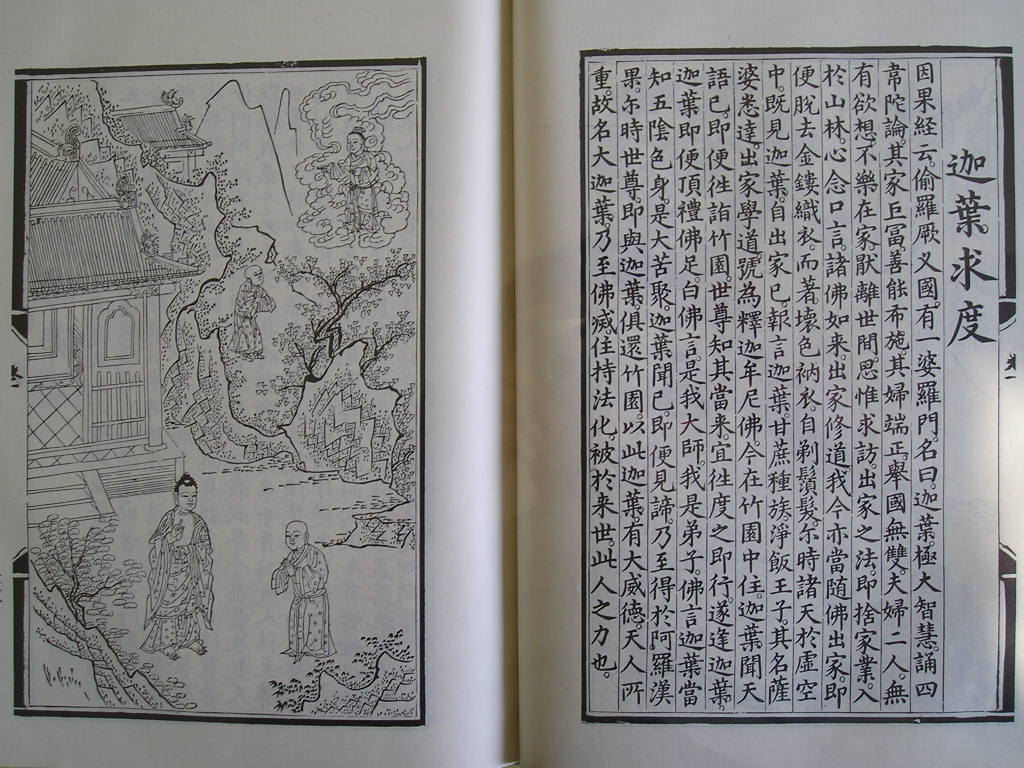 迦葉求度
因果經云。偷羅厥义國。有一婆羅門。名曰。迦葉。極大智慧。誦四
韋陀論。其家巨冨。善能布施。其婦端正。舉國無雙。夫婦二人。無
有欲想。不樂在家。猒離世間。思惟求訪。出家之法。即捨家業。入
於山林。心念口言。諸佛如来。出家修道。我今亦當隨佛出家。即
便脫去金鏤織衣。而著壊色衲衣。自剃鬚髮。尓時諸天於虛空
中。既見迦葉。自出家已。報言迦葉。甘蔗種族。淨飯王子。其名薩
婆悉達。出家學道。號為釋迦牟尼佛。今在竹園中住。迦葉聞天
語已。即便徃詣竹園。世尊知其當来。宜徃度之。即行。遂逢迦葉。
迦葉即便頂禮佛足。白佛言。是我大師。我是弟子。佛言迦葉當
知。五陰色身。是大苦聚。迦葉聞已。即便見諦。乃至得於阿羅漢
果。尓時世尊。即與迦葉俱還竹園。以此迦葉。有大威德。天人所
重。故名大迦葉。乃至佛滅。住持法化。被於来世。此人之力也。
卷一